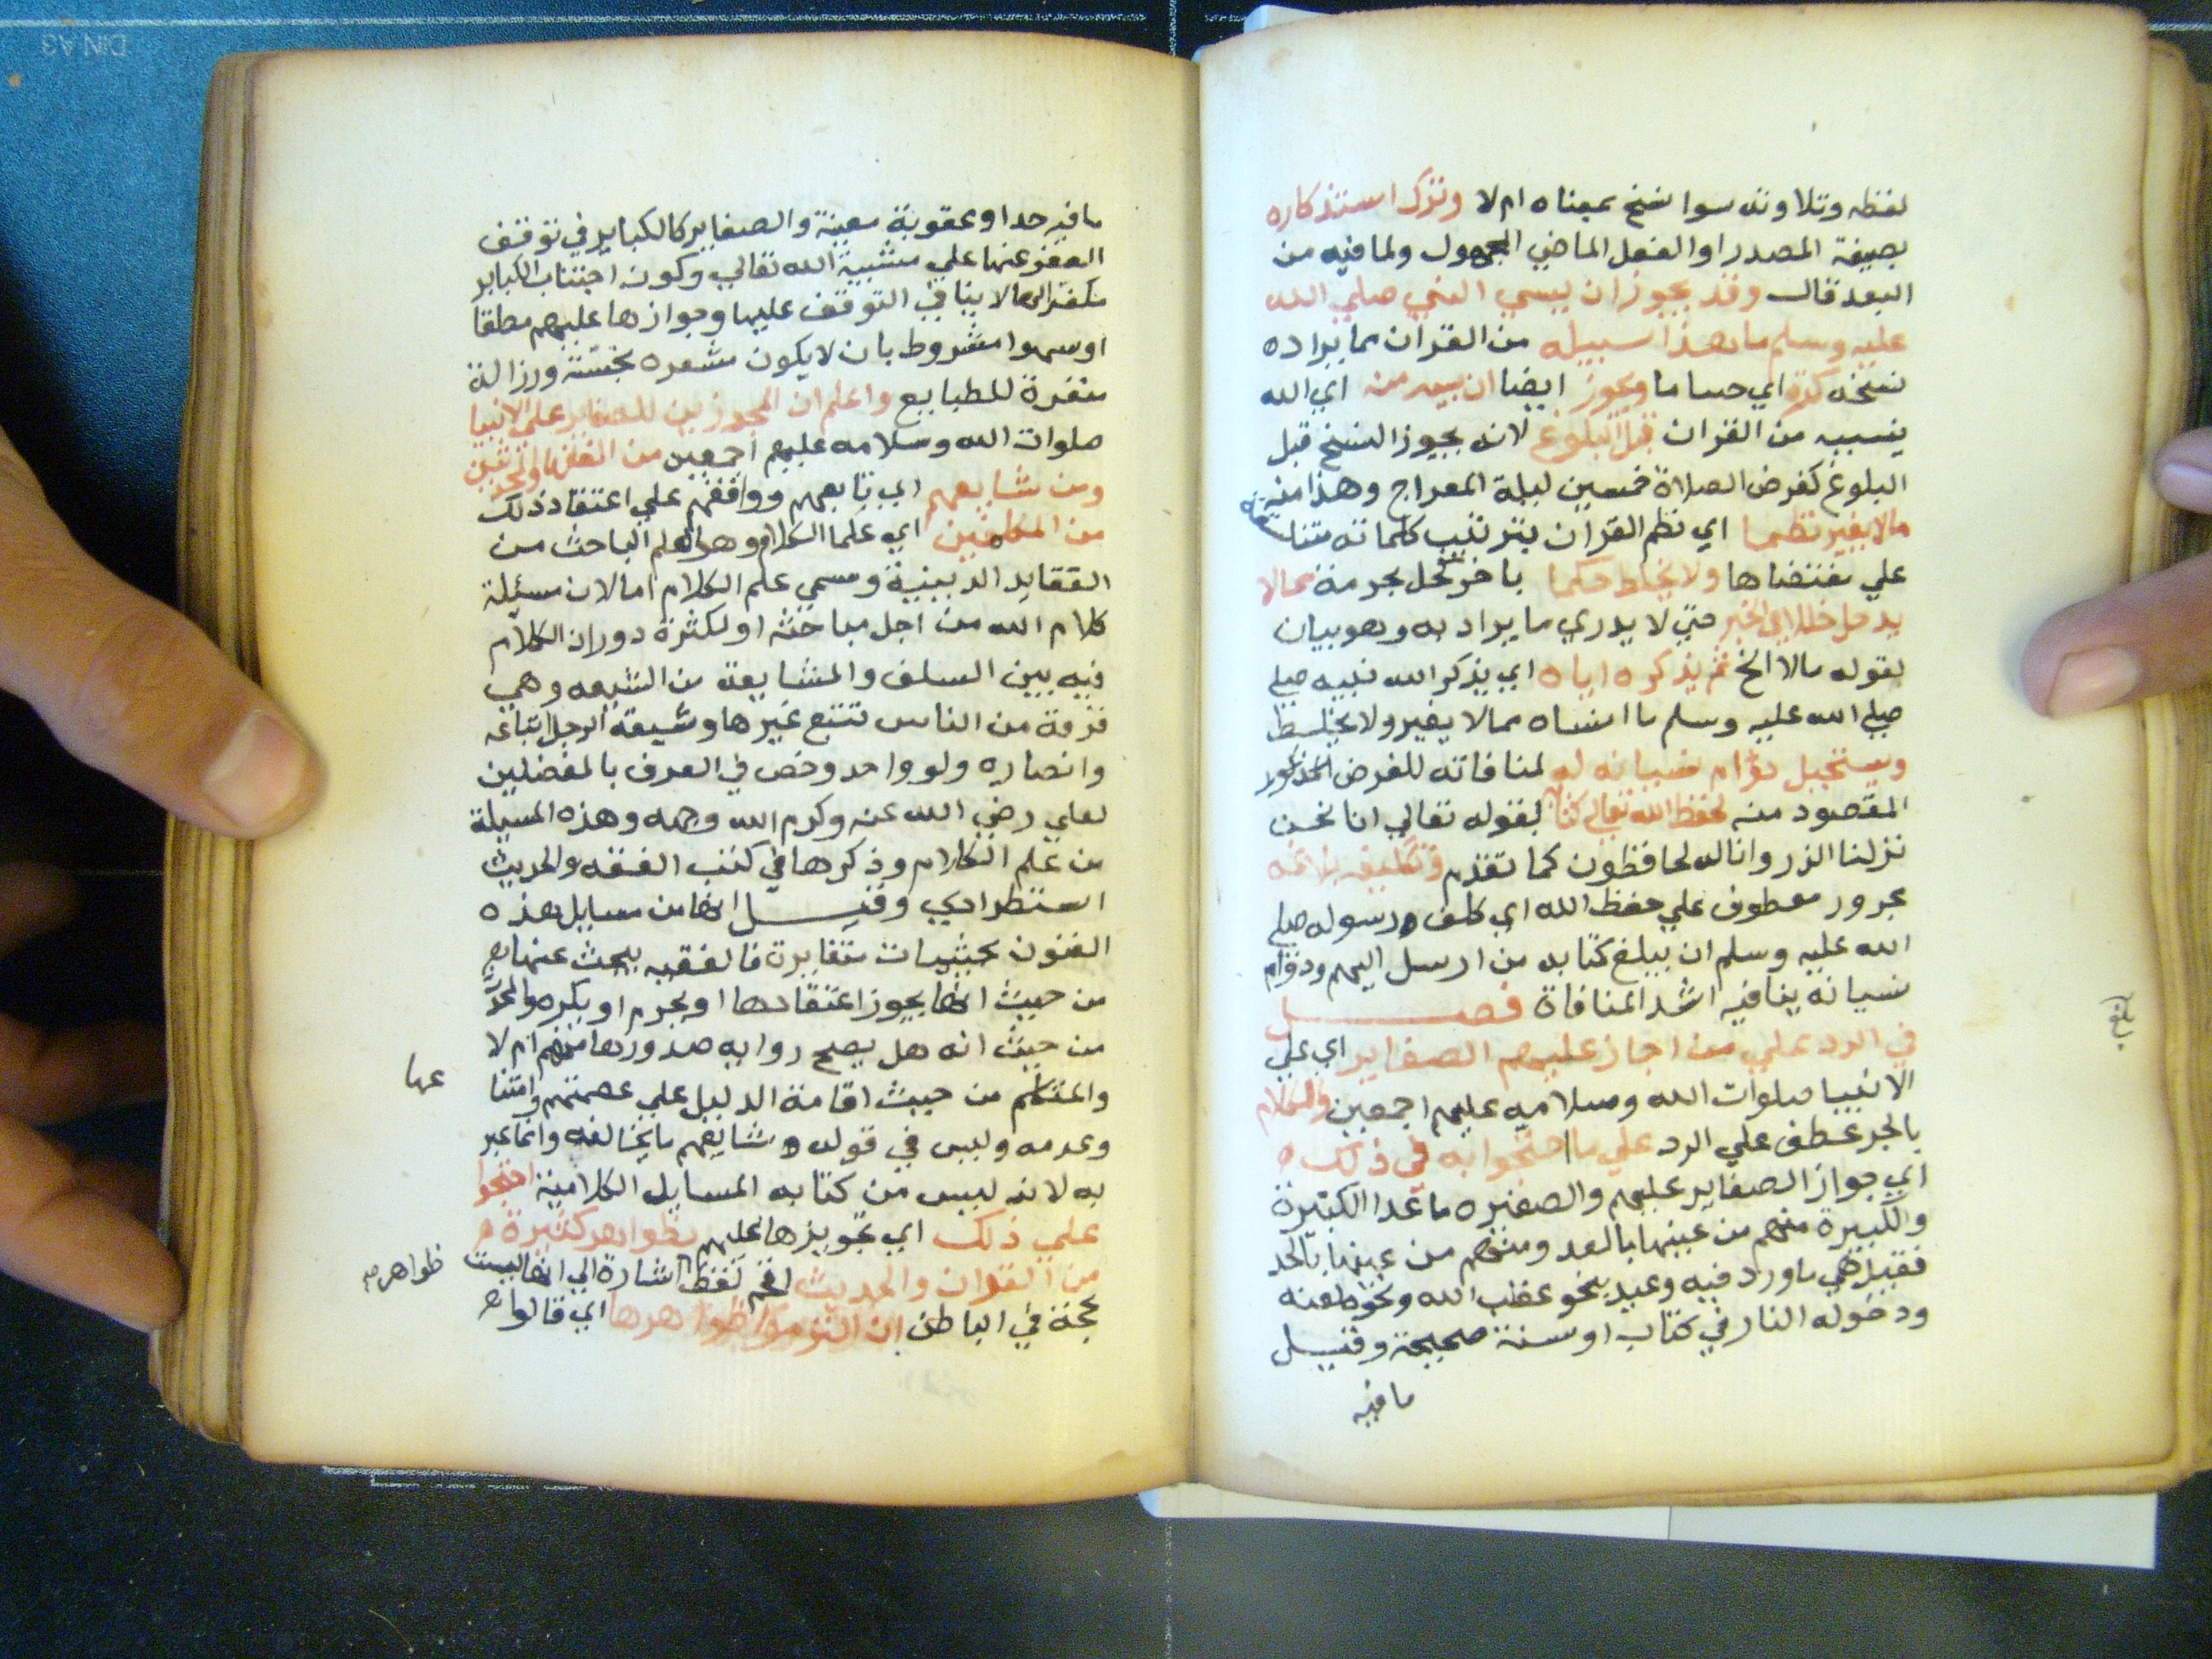 لفظه وتلاوته سوا نسخ معناه ام لا وترك استذكاره
بصيغة المصدر او الفعل الماضي المجهول ولما فيه من
البعد قال وقد يجوز ان ينسي النبي صلي الله
عليه وسلم ما هذا سبيله من القران مما يراد
نسخه كرة اي حسا ما ويجوز ايضا ان ينسيه منه اي الله
ينسيه من القران قبل البلوغ لانه يجوز النسخ قبل
البلوغ كفرض الصلاة خمسين ليلة المعراج وهذا منه
مالا يغير نظما اي نظم القران بترتيب كلماته متناسقة
علي مقتضاها ولا يخلط حكما باخر كحل بحرمة مما لا
يدخل خللا في الخبر حتي لا يدري ما يراد به وهو بيان
لقوله مالا الخ ثم يذكره اياه اي يذكر الله نبيه صلي
صلي الله عليه وسلم ما انساه مما لا يغير ولا يخلط
ويستحيل دوام نسيانه له لمنافاته للغرض المذكور
المقصود منه لحفظ الله تعالي كتابه لقوله تعالي انا نحن
نزلنا الذكر وانا له لحافظون كما تقدم وتكليفه بلاغه
مجرور معطوف علي حفظ الله اي كلف رسوله صلي
الله عليه وسلم ان يبلغ كتابه من ارسل اليهم ودوام
نسيانه ينافيه اشد المنافاة فصل
في الرد علي من اجاز عليهم الصغاير اي علي
الانبيا صلوات الله وسلامه عليهم اجمعين والكلام
بالجر عطف علي الرد علي ما احتجوا به في ذلك
اي جواز الصغاير عليهم والصغيره ما عدا الكبيرة
والكبيرة منهم من عينها بالعد ومنهم من عينها بالحد
فقيل هي ما ورد فيه وعيد بنحو غضب الله ونحو لعنه
ودخوله النار في كتاب او سنة صحيحة وقيل
ما فيه
بلغ
ما فيه حد او عقوبة معينة والصغاير كالكباير في توقف
العفو عنها علي مشيية الله تعالي وكون اجتناب الكباير
مكفرا لها لا ينافي التوقف عليها وجوازها عليهم مطلقا
او سهوا مشروط بان لا يكون مشعره بخسة ورزالة
منفرة للطبايع واعلم ان المجوزين للصغاير علي الانبيا
صلوات الله وسلامه عليهم اجمعين من الفقها والمحدثين
ومن شايعهم اي تابعهم ووافقهم علي اعتقاد ذلك
من المتكلمين اي علما الكلام وهو العلم الباحث من
العقايد الدينية وسمي علم الكلام اما لان مسئلة
كلام الله من اجل مباحثه او لكثرة دوران الكلام
فيه بين السلف والمشايعة من الشيعه وهي
فرقة من الناس تتبع غيرها وشيعة الرجل اتباعه
وانصاره ولو واحد وخص في العرف بالمفضلين
لعلي رضي الله عنه وكرم الله وجهه وهذه المسيلة
من علم الكلام وذكرها في كتب الفقه والحديث
استطرادي وقيل انها من مسايل هذه
الفنون بحيثيات متغايرة فالفقيه يبحث عنها
من حيث انها يجوز اعتقادها او يحرم او يكره والمحدث
من حيث انه هل يصح روايه صدورها منهم ام لا
والمتكلم من حيث اقامة الدليل علي عصمتهم وامتنا
عها
وعدمه وليس في قوله شايعهم ما يخالفه وانما عبر
به لانه ليس من كتابه المسايل الكلامية احتجوا
علي ذلك اي تجويزها عليهم بظواهر كثيرة
من القران والحديث اقحم لفظ اشارة الي انها ليست
ظواهر صح
بحجة في الباطن ان التزموا ظواهرها اي قالوا